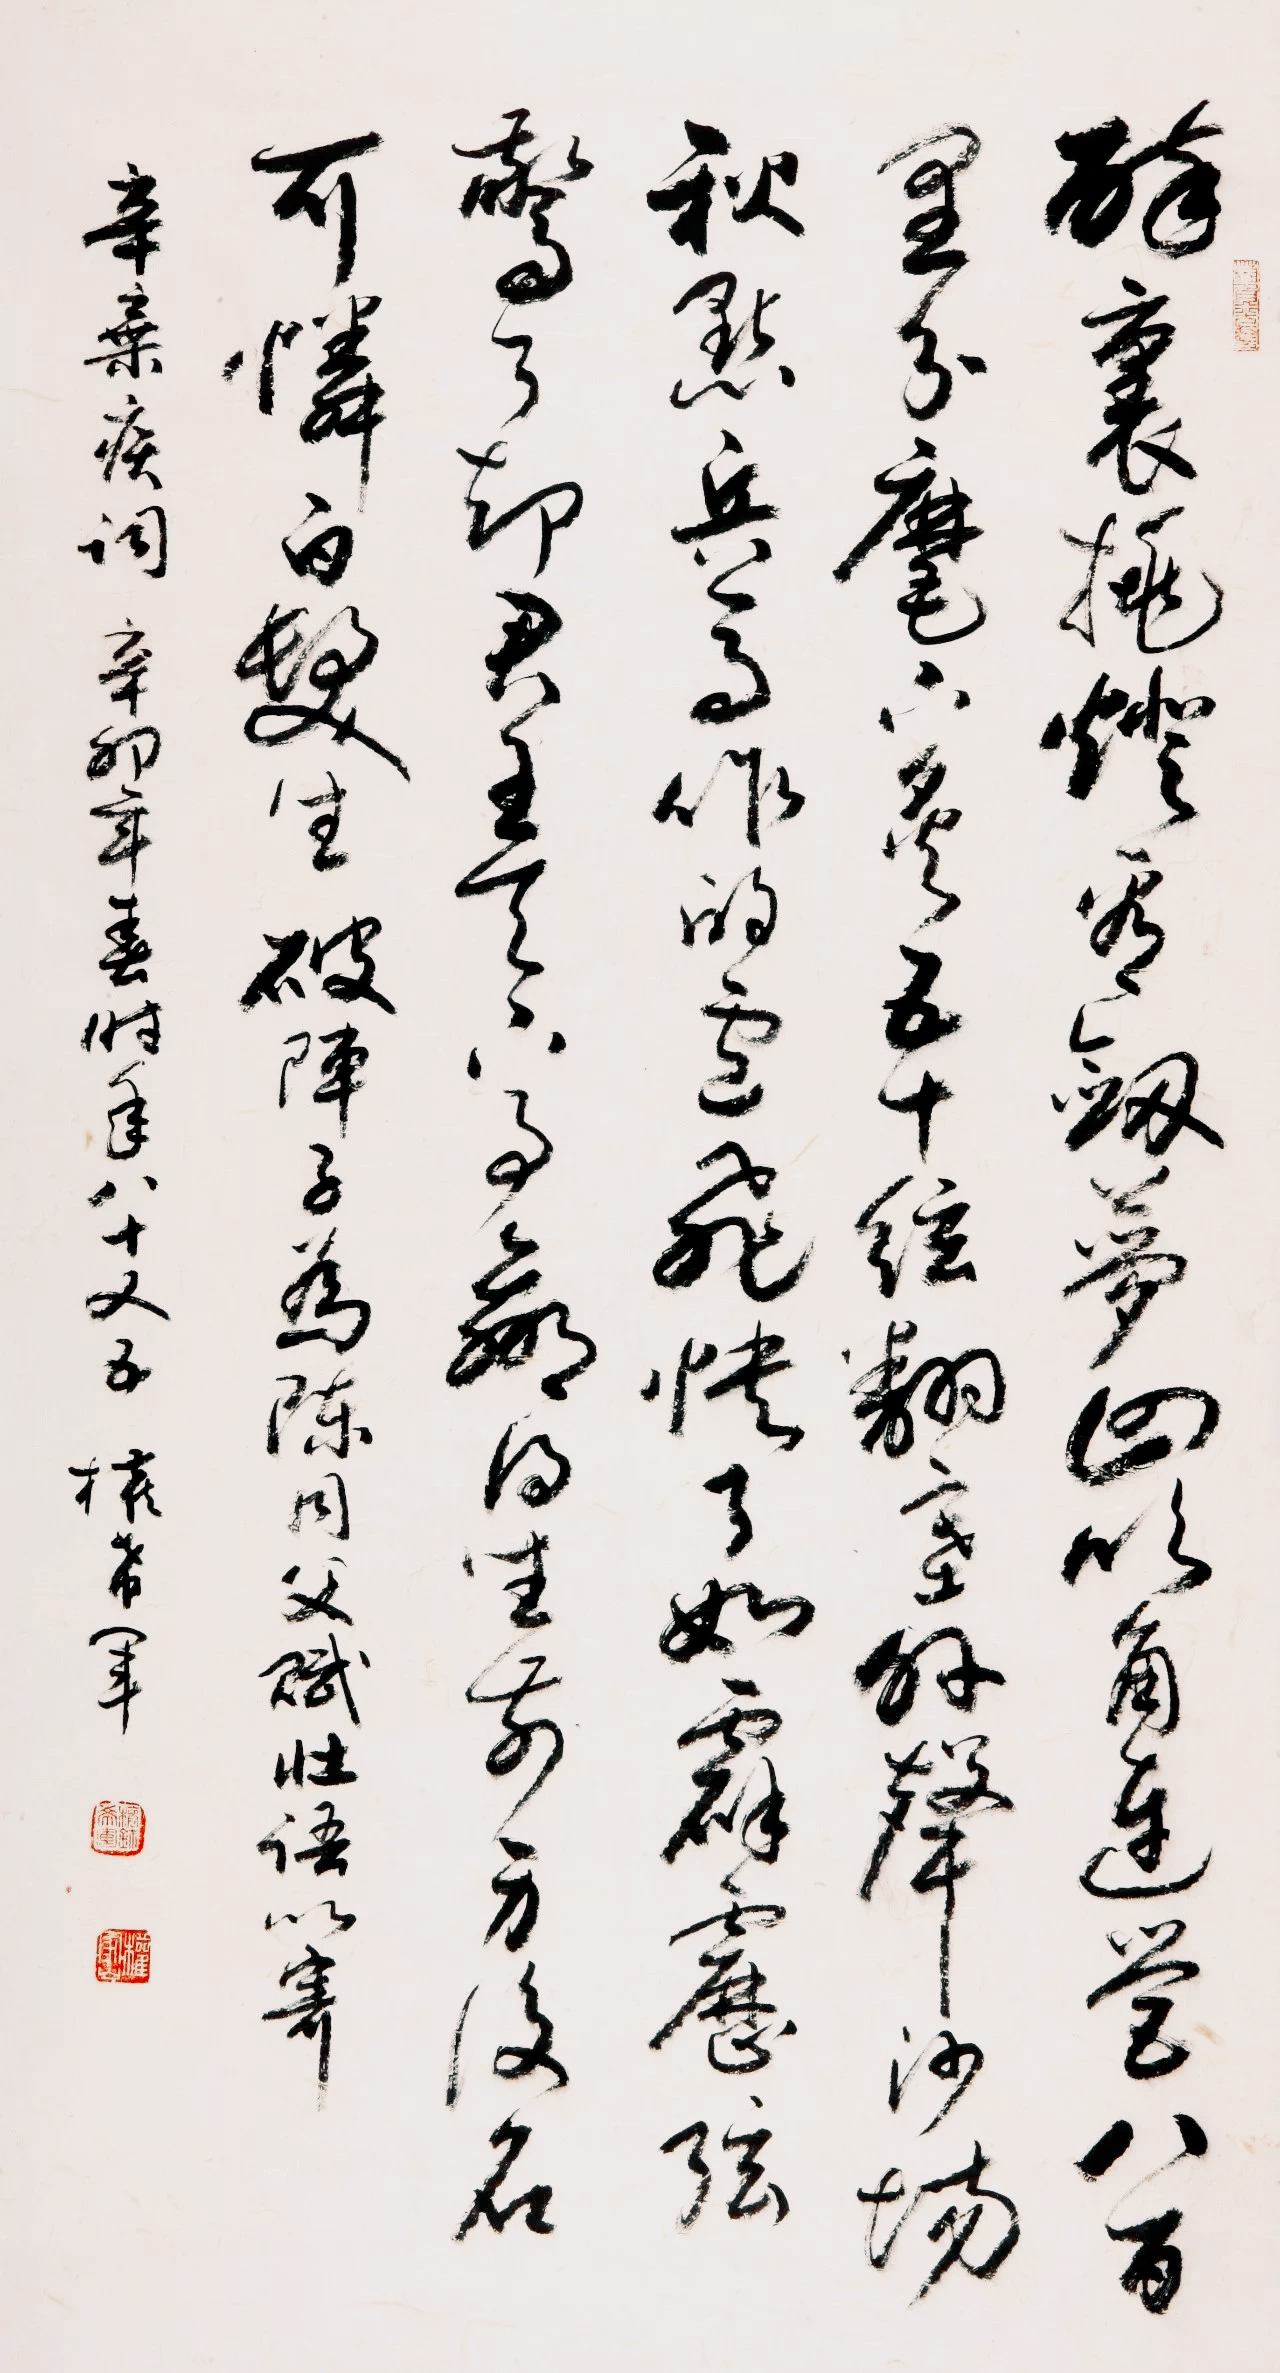 醉裏挑燈看劍夢回吹角連營八百
里分麾下炙五十絃翻塞外聲沙場
秋點兵馬作的盧飛快弓如霹靂弦
驚了却君王天下事贏得生前身後名
可憐白髮生 破陣子為陳同父賦壯語以寄
辛棄疾詞 辛卯年春時年八十又五 權希軍